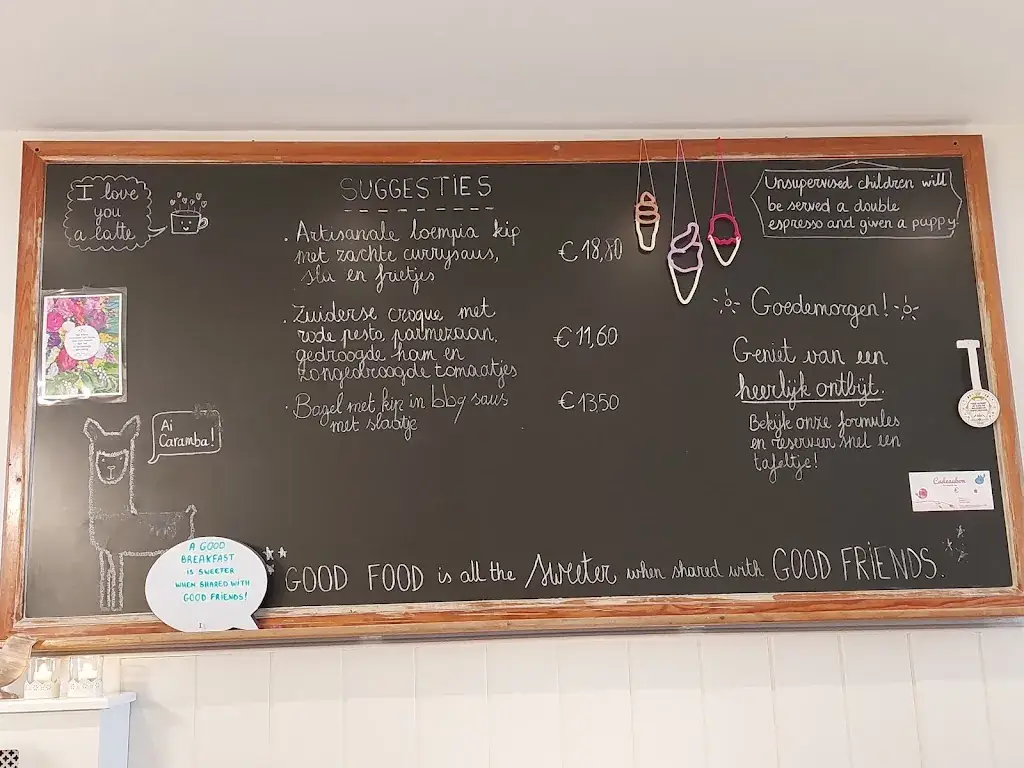 I love
you
a latte
SUGGESTIES
. Artisanale loempia kip
met zachte currysaus,
sla en frietjes
€ 18,80
. Zuiderse croque met
rode pesto, parmezaan,
gedroogde ham en
zongedroogde tomaatjes
€ 11,60
. Bagel met kip in bbq saus
met slaatje
€ 13,50
Unsupervised children will
be served a double
espresso and given a puppy
Goedemorgen!
Geniet van een
heerlijk ontbijt.
Bekijk onze formules
en reserveer snel een
tafeltje!
Cadeaubon
Ai
Caramba!
A GOOD
BREAKFAST
IS SWEETER
WHEN SHARED WITH
GOOD FRIENDS!
GOOD FOOD is all the sweeter when shared with GOOD FRIENDS.